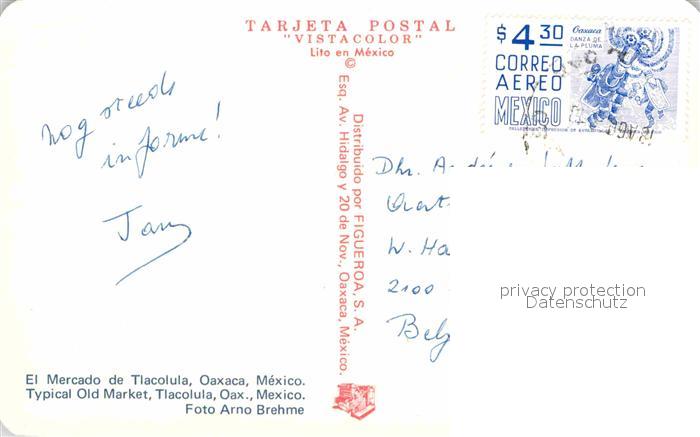 TARJETA POSTAL
"VISTACOLOR"
Lito en México
©
$4.30
Oaxaca
DANZA DE
LA PLUMA
CORREO
AEREO
MEXICO
nog steeds
in forme!
Jan
Distribuido por FIGUEROA, S. A.
Esq. Av. Hidalgo y 20 de Nov., Oaxaca, México.
Dhr. André
W. Ha
2100
Belg
privacy protection
Datenschutz
El Mercado de Tlacolula, Oaxaca, México.
Typical Old Market, Tlacolula, Oax., Mexico.
Foto Arno Brehme